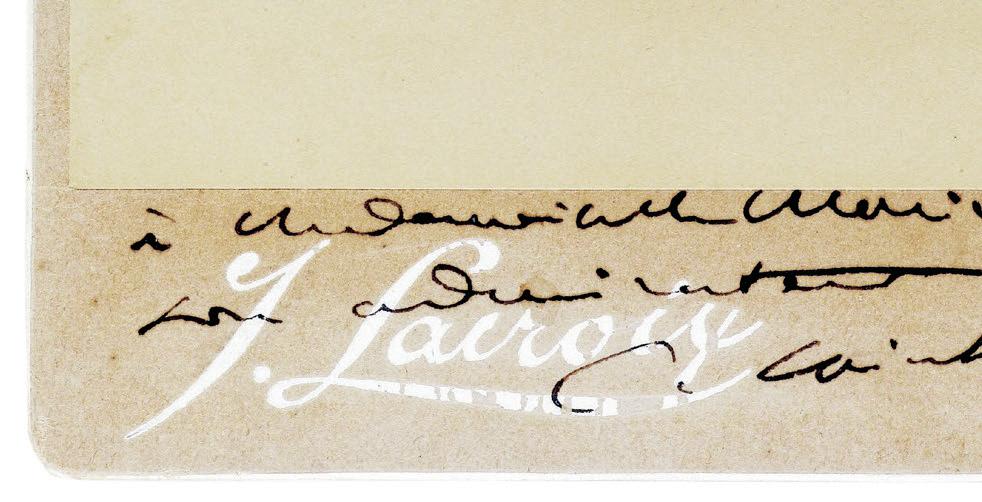 à Mademoiselle Marie
son admirateur
J. Lacroix
C. Saint